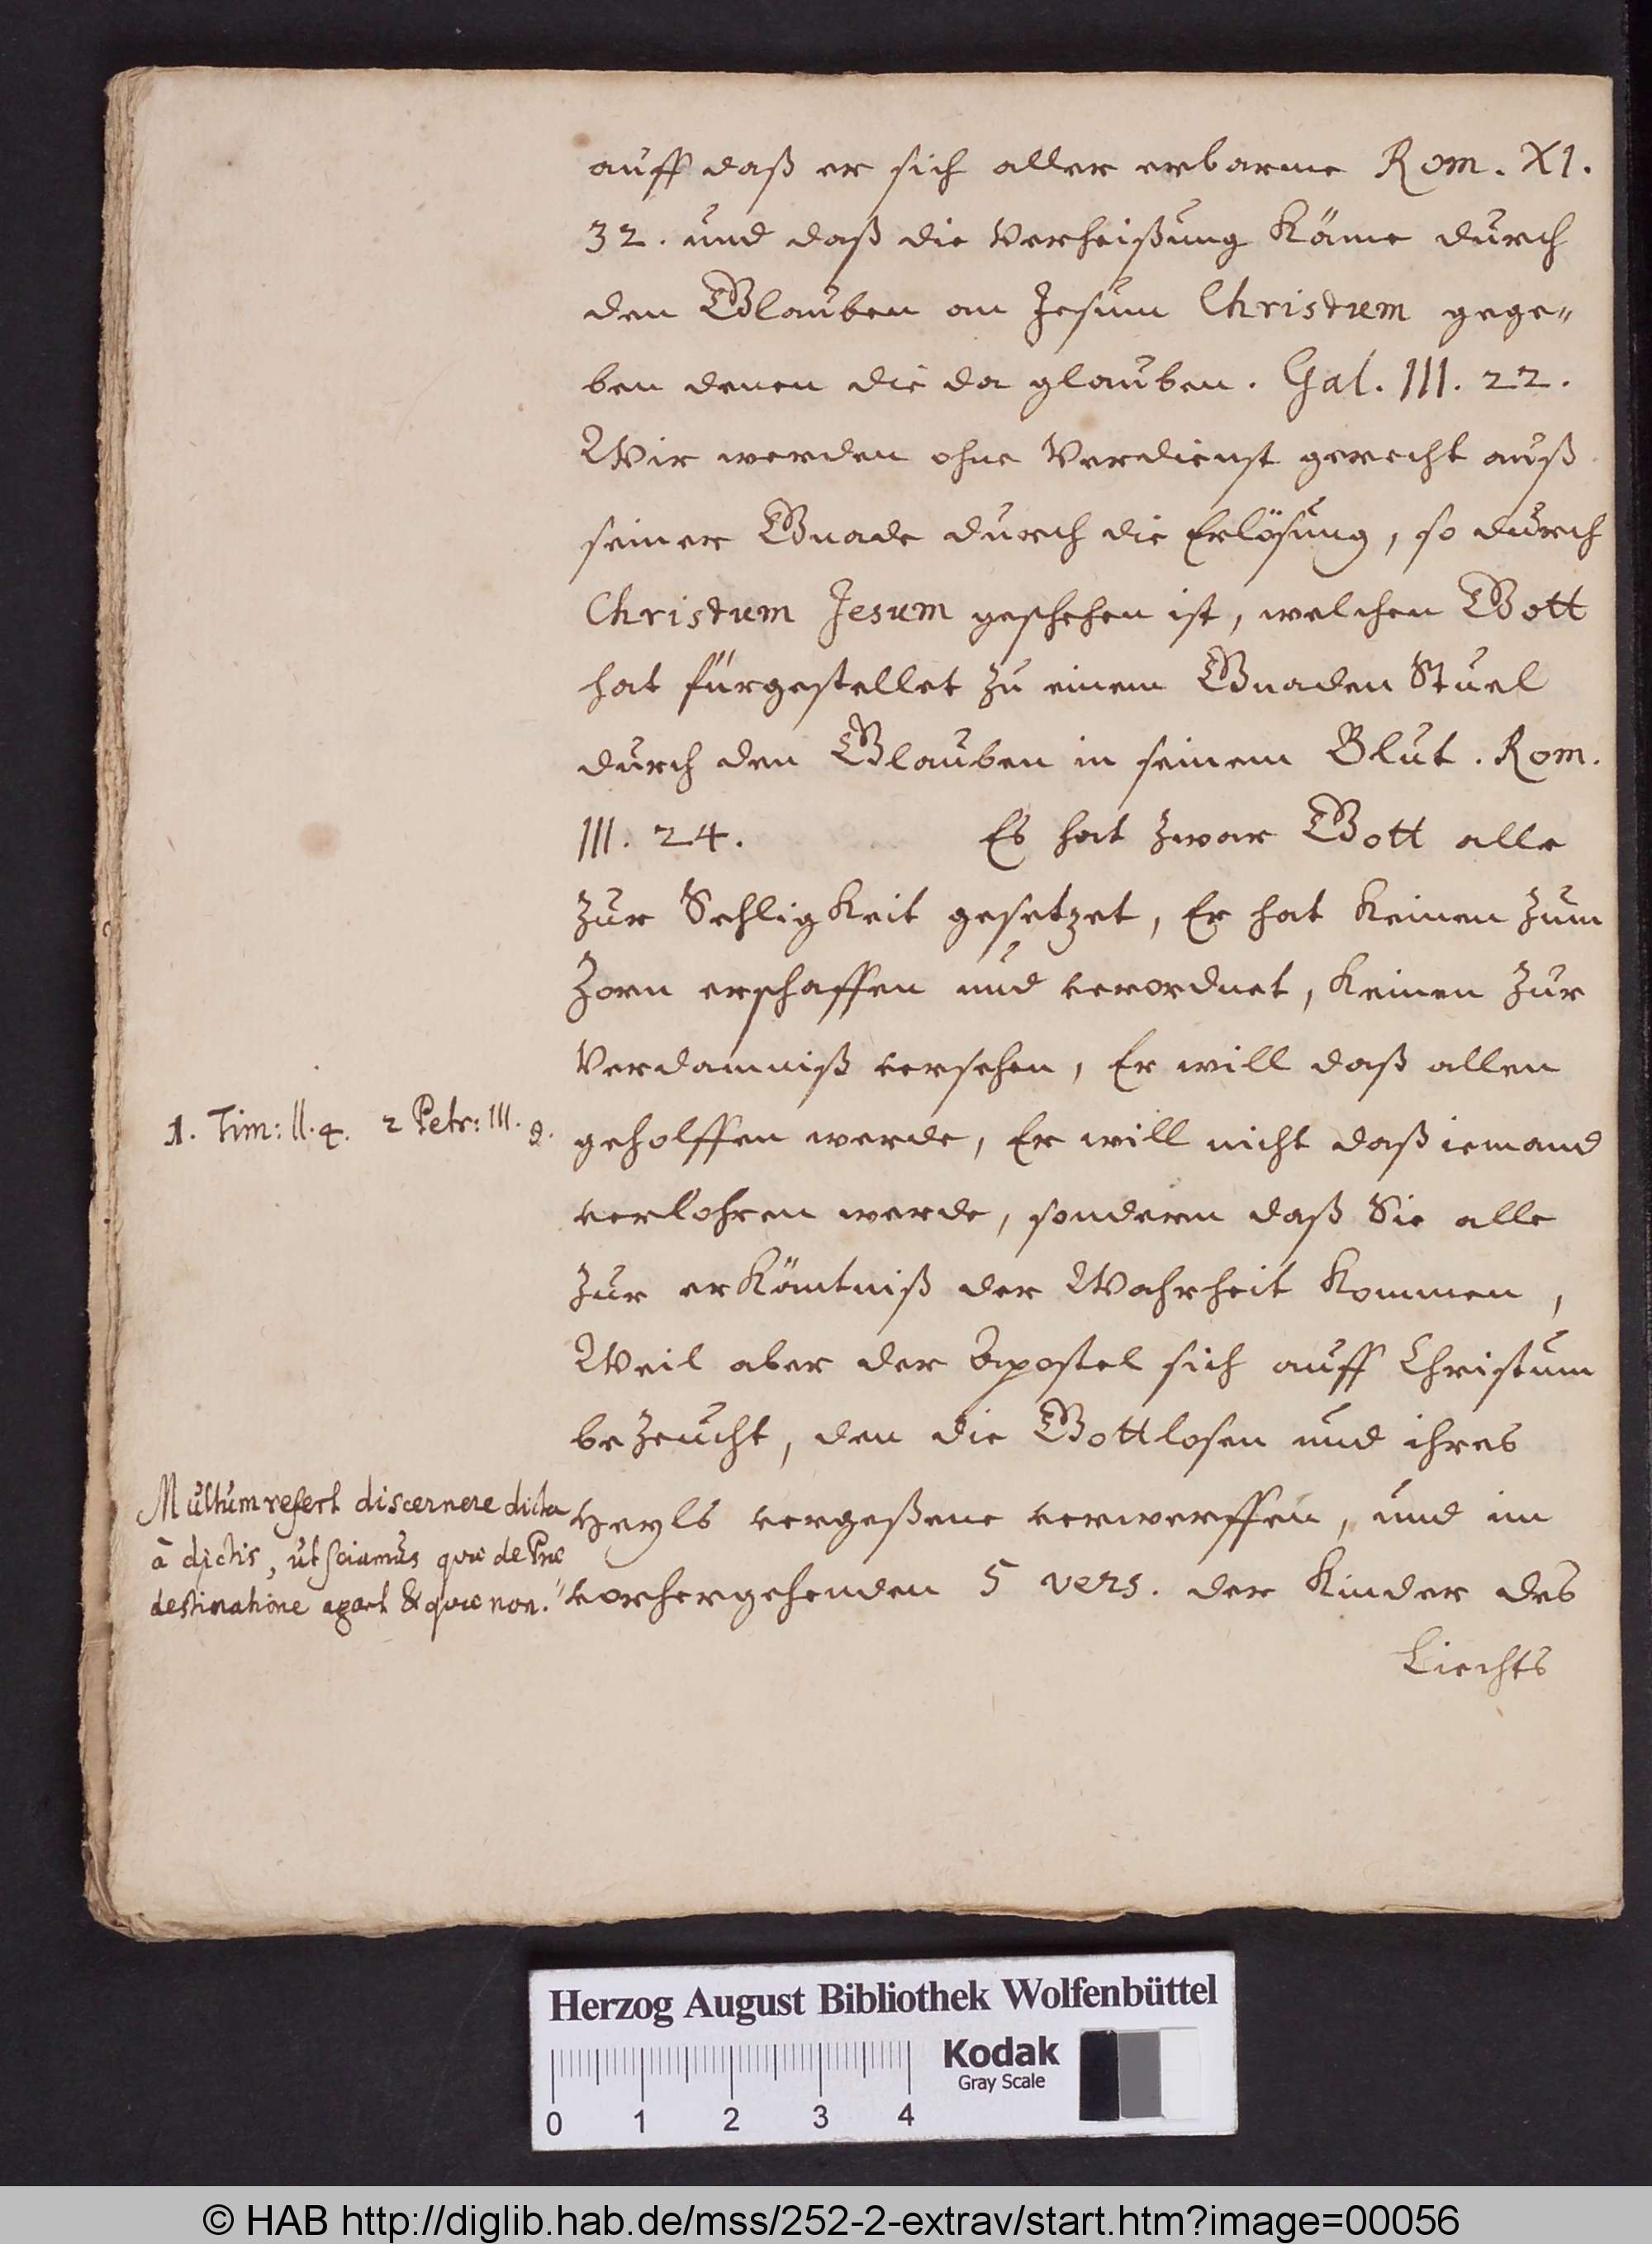 auff daß er sich aller erbarme Rom. XI.
32. und daß die Verheißung Käme durch
den Glauben an Jesum Christum gege„
ben denen die da glauben. Gal. III. 22.
Wir werden ohne Verdienst gerecht auß
seiner Gnade durch die Erlösung, so durch
Christum Jesum geschehen ist, welchen Gott
hat fürgestellet zu einem Gnaden Stuel
durch den Glauben in seinem Blut. Rom.
III. 24. Es hat zwar Gott alle
zur Sehligkeit gesetzet, Er hat keinen zum
Zorn erschaffen und verordnet, keinen zur
Verdamniß versehen, Er will daß allen
1. Tim: II. 4. 2 Petr: III. 9.
geholffen werde, Er will nicht daß iemand
verlohren werde, sondern daß Sie alle
zur erkäntniß der Wahrheit kommen,
Weil aber der Apostel sich auff Christum
bezeucht, den die Gottlosen und ihres
Multum refert discernere dicta
à dictis, ut sciamus quæ de Præ
destinatione agant & quæ non.
Heyls vergeßene verwerffen, und im
vorhergehenden 5 vers. der Kinder des
Liechts
Herzog August Bibliothek Wolfenbüttel
Kodak
Gray Scale
0 1 2 3 4
© HAB http://diglib.hab.de/mss/252-2-extrav/start.htm?image=00056